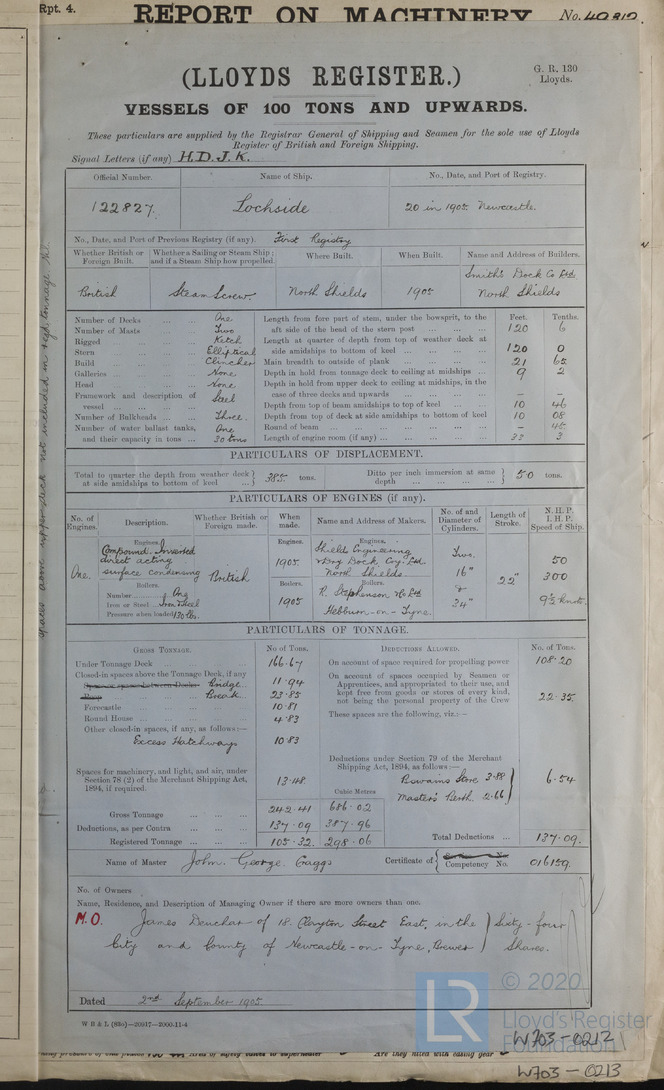 Rpt. 4.
REPORT ON MACHINERY
No. 40812
(LLOYDS REGISTER.)
G. R. 130
Lloyds.
VESSELS OF 100 TONS AND UPWARDS.
These particulars are supplied by the Registrar General of Shipping and Seamen for the sole use of Lloyds
Register of British and Foreign Shipping.
Signal Letters (if any) H.D.J.K.
Official Number. Name of Ship. No., Date, and Port of Registry.
122827. Lochside 20 in 1905 Newcastle.
No., Date, and Port of Previous Registry (if any). First Registry
Whether British or Foreign Built. Whether a Sailing or Steam Ship; and if a Steam Ship how propelled. Where Built. When Built. Name and Address of Builders.
British Steam Screw. North Shields 1905 Smith's Dock Co Ltd North Shields
Number of Decks ... ... One
Number of Masts ... ... Two
Rigged ... ... Ketch
Stern ... ... Elliptical
Build ... ... Clincher
Galleries ... ... None
Head ... ... None
Framework and description of vessel ... ... Steel
Number of Bulkheads ... Three.
Number of water ballast tanks, One
and their capacity in tons ... 30 tons
Feet. Tenths.
Length from fore part of stem, under the bowsprit, to the
aft side of the head of the stern post ... ... ... 120 6
Length at quarter of depth from top of weather deck at
side amidships to bottom of keel ... ... ... 120 0
Main breadth to outside of plank ... ... ... 21 65
Depth in hold from tonnage deck to ceiling at midships ... 9 2
Depth in hold from upper deck to ceiling at midships, in the
case of three decks and upwards ... ... ... – –
Depth from top of beam amidships to top of keel ... ... 10 46
Depth from top of deck at side amidships to bottom of keel 10 08
Round of beam ... ... ... – 45
Length of engine room (if any) ... ... ... 32 3
PARTICULARS OF DISPLACEMENT.
Total to quarter the depth from weather deck at side amidships to bottom of keel ... 385 tons.
Ditto per inch immersion at same depth ... ... 50 tons.
PARTICULARS OF ENGINES (if any).
No. of Engines. Description. Whether British or Foreign made. When made. Name and Address of Makers. No. of and Diameter of Cylinders. Length of Stroke. N.H.P. I.H.P. Speed of Ship.
Engines. Engines. Engines.
One. Compound Inverted direct acting surface condensing British 1905 Shields Engineering & Dry Dock Coy. Ltd. North Shields Two. 16" & 34" 22" 50 300 9½ knots.
Boilers. Boilers. Boilers.
Number ... One
Iron or Steel ... Iron & Steel
Pressure when loaded 130 lbs.
1905 R. Stephenson & Co Ltd Hebburn-on-Tyne.
PARTICULARS OF TONNAGE.
GROSS TONNAGE. No of Tons. DEDUCTIONS ALLOWED. No. of Tons.
Under Tonnage Deck ... ... 166.67
Closed-in spaces above the Tonnage Deck, if any
Space or spaces between Decks Bridge 11.94
Poop Break 23.85
Forecastle ... 10.81
Round House ... ... 4.83
Other closed-in spaces, if any, as follows:—
Excess Hatchways 10.83
Spaces for machinery, and light, and air, under
Section 78 (2) of the Merchant Shipping Act,
1894, if required. 13.48
Cubic Metres
Gross Tonnage ... ... 242.41 686.02
Deductions, as per Contra ... ... 137.09 387.96
Registered Tonnage ... ... 105.32 298.06
On account of space required for propelling power 108.20
On account of spaces occupied by Seamen or
Apprentices, and appropriated to their use, and
kept free from goods or stores of every kind,
not being the personal property of the Crew 22.35
These spaces are the following, viz.:—
Deductions under Section 79 of the Merchant
Shipping Act, 1894, as follows:—
Bowains Store 3.88
Master's Berth 2.66
6.54
Total Deductions ... 137.09.
Name of Master John George Gaggs Certificate of Competency No. 016159.
No. of Owners
Name, Residence, and Description of Managing Owner if there are more owners than one.
M.O. James Deuchar of 18 Clayton Street East, in the
City and County of Newcastle-on-Tyne, Brewer
Sixty-four
Shares.
Dated 2nd September 1905.
W B & L (83o)—20917—2000-11-4
© 2020
LR
Lloyd's Register
Foundation
W703-0212
W703-0213
Are they fitted with easing gear